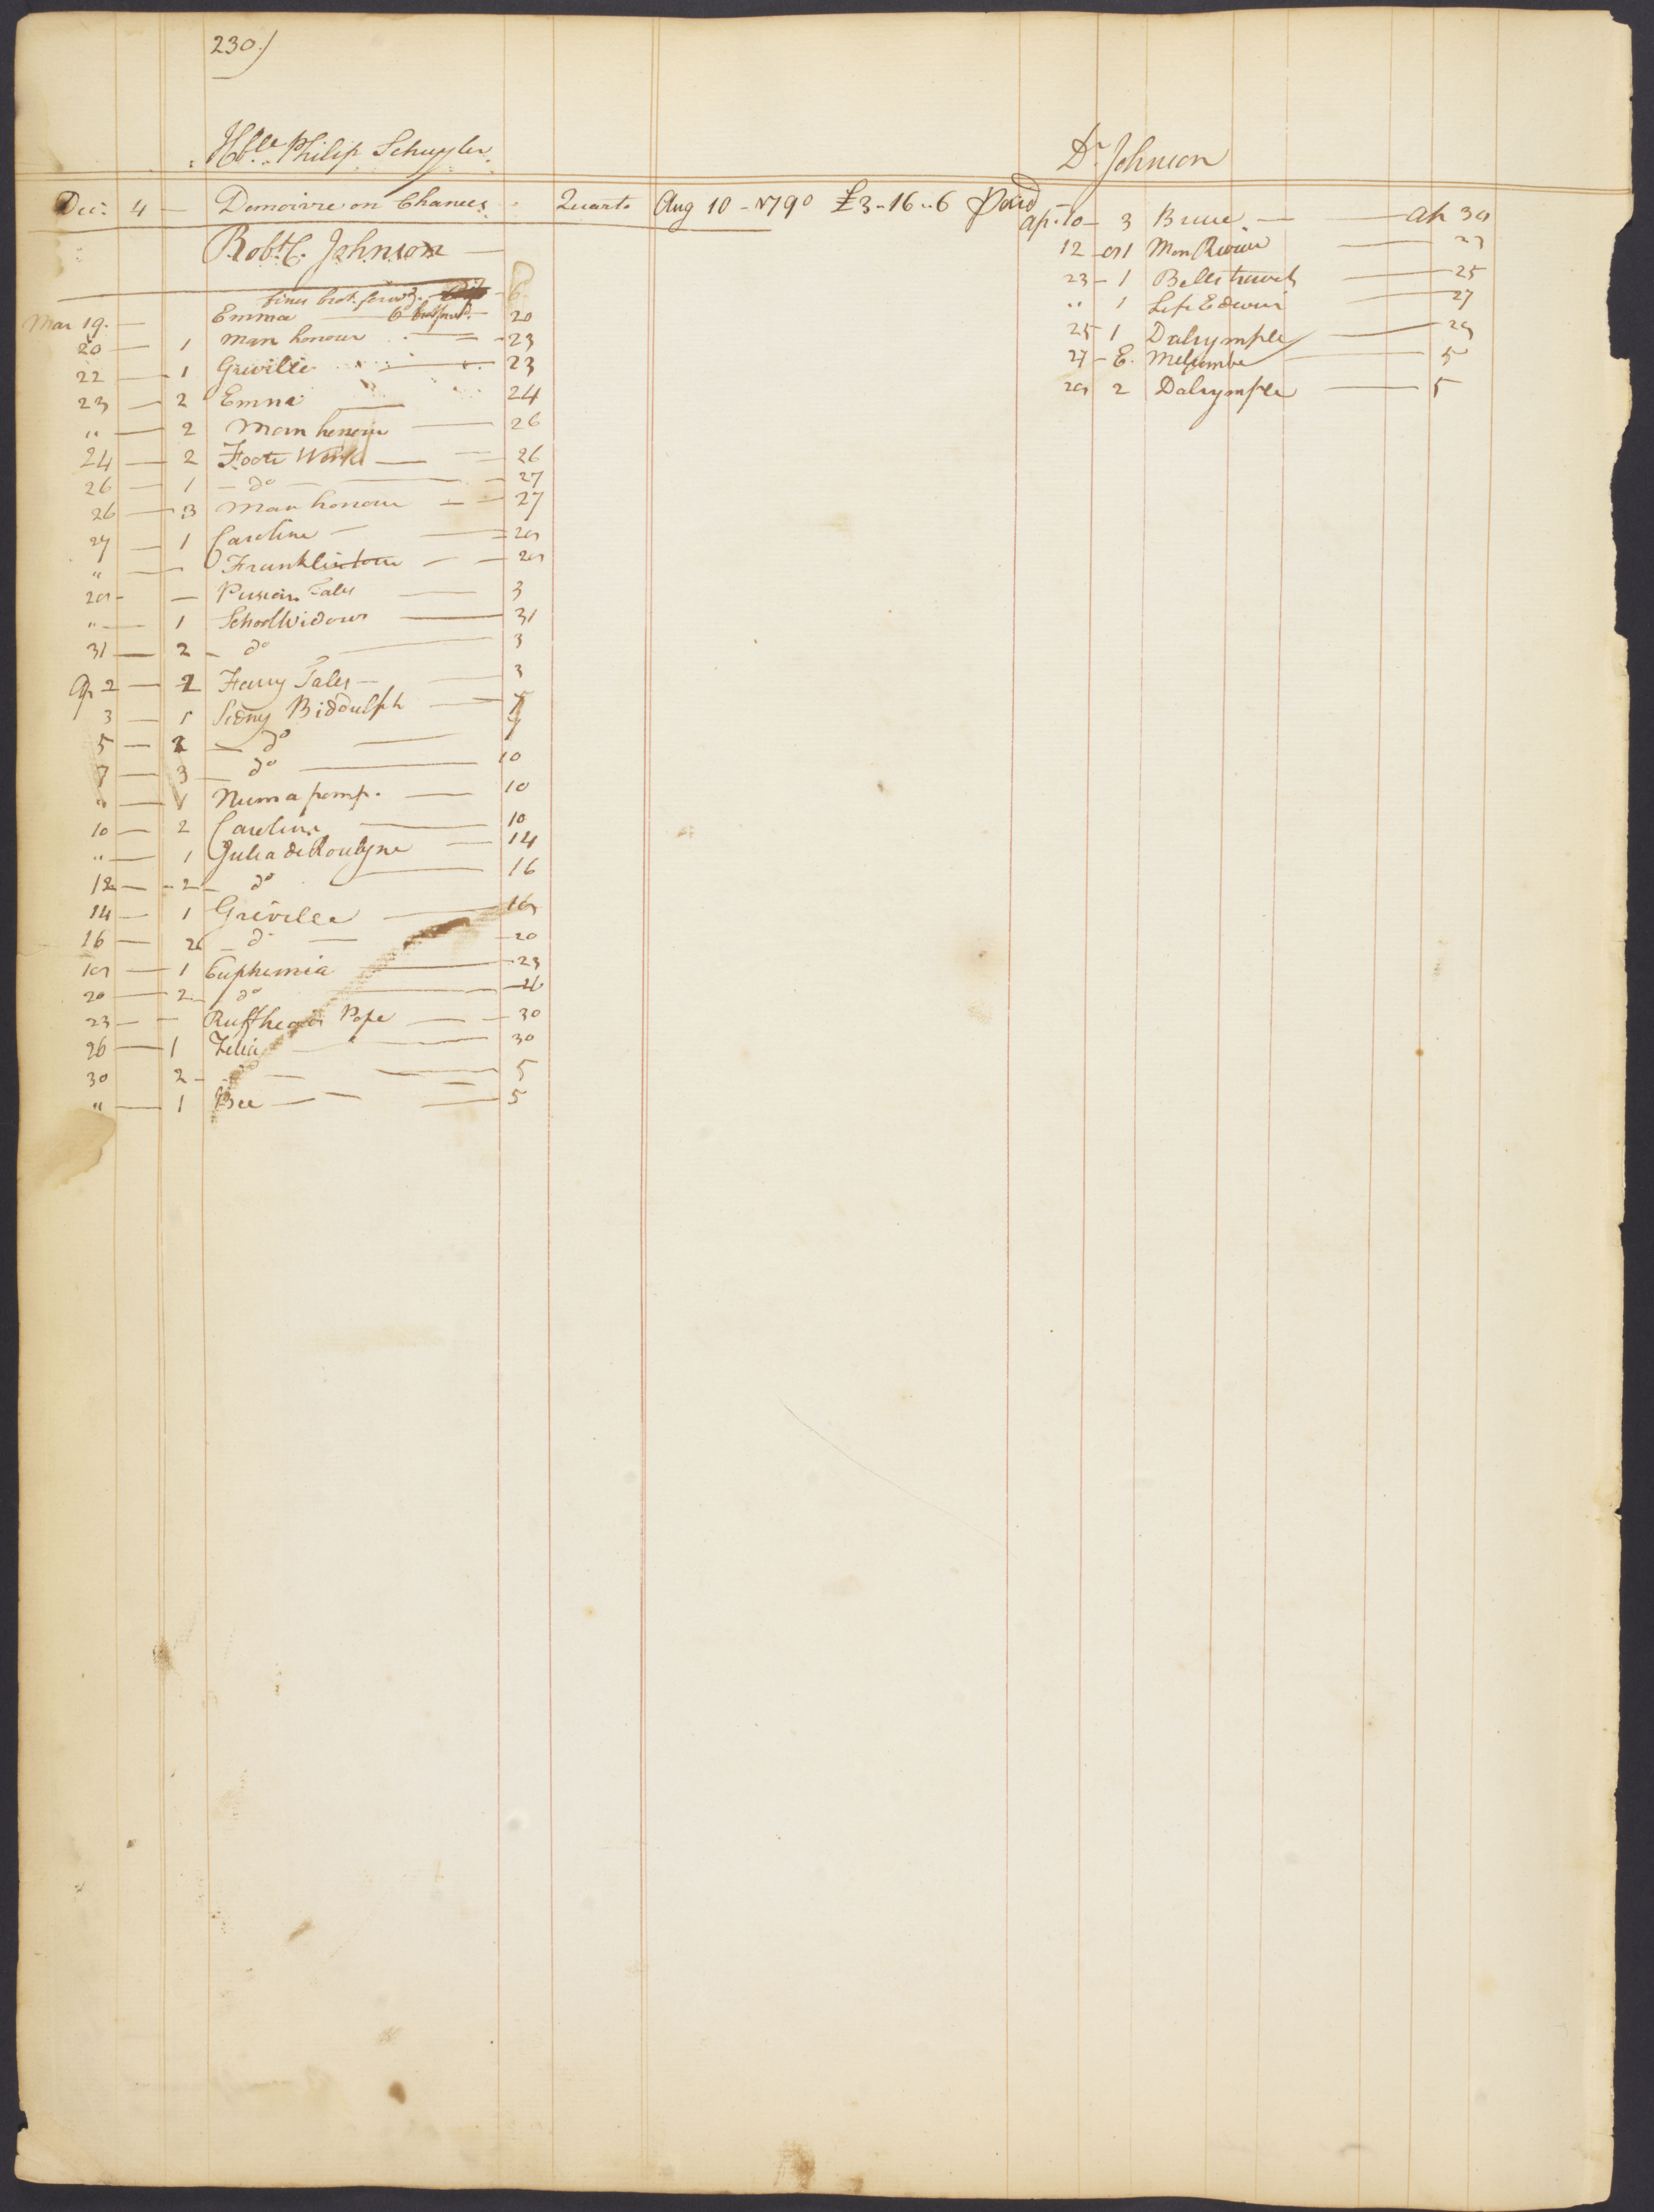 230)
Hble Philip Schuyler
Dec: 4 — Demoivre on Chances Quarto Aug 10 - 1790 £3..16..6 Paid
Robt. C. Johnson —
fines brot. forwd. 6
Mar 19. — Emma — 20
20 — 1 man honour — 23
22 — 1 Greville — 23
23 — 2 Emma — 24
" — 2 Man honour — 26
24 — 2 Foote Works — 26
26 — 1 — do — 27
26 — 3 Man honour — 27
27 — 1 Caroline — 29
" — Franklin — 29
29 - — Persian Tales — 3
" — 1 School Widows — 31
31 — 2 — do — 3
Ap 2 — 2 Fairy Tales — 3
3 — 1 Sidny Biddulph —
5 — 2 — do —
7 — 3 — do — 10
" — 1 Numa pomp. — 10
10 — 2 Caroline — 10
" — 1 Julia de Roubigne — 14
12 — 2 — do — 16
14 — 1 Greville — 19
16 — 2 — do — 20
19 — 1 Euphemia — 23
20 — 2 — do — 26
23 — — Ruffheads Pope — 30
26 — 1 Zelia — 30
30 2 — 5
" — 1 Bee — 5
Dr Johnson
Ap. 10 — 3 Bruce — Ap 30
12 — 91 Mon Review — 23
23 - 1 Bells travels — 25
" 1 Life Edwin — 27
25 1 Dalrymple — 29
27 — E. Melcombe — 5
29 2 Dalrymple — 5